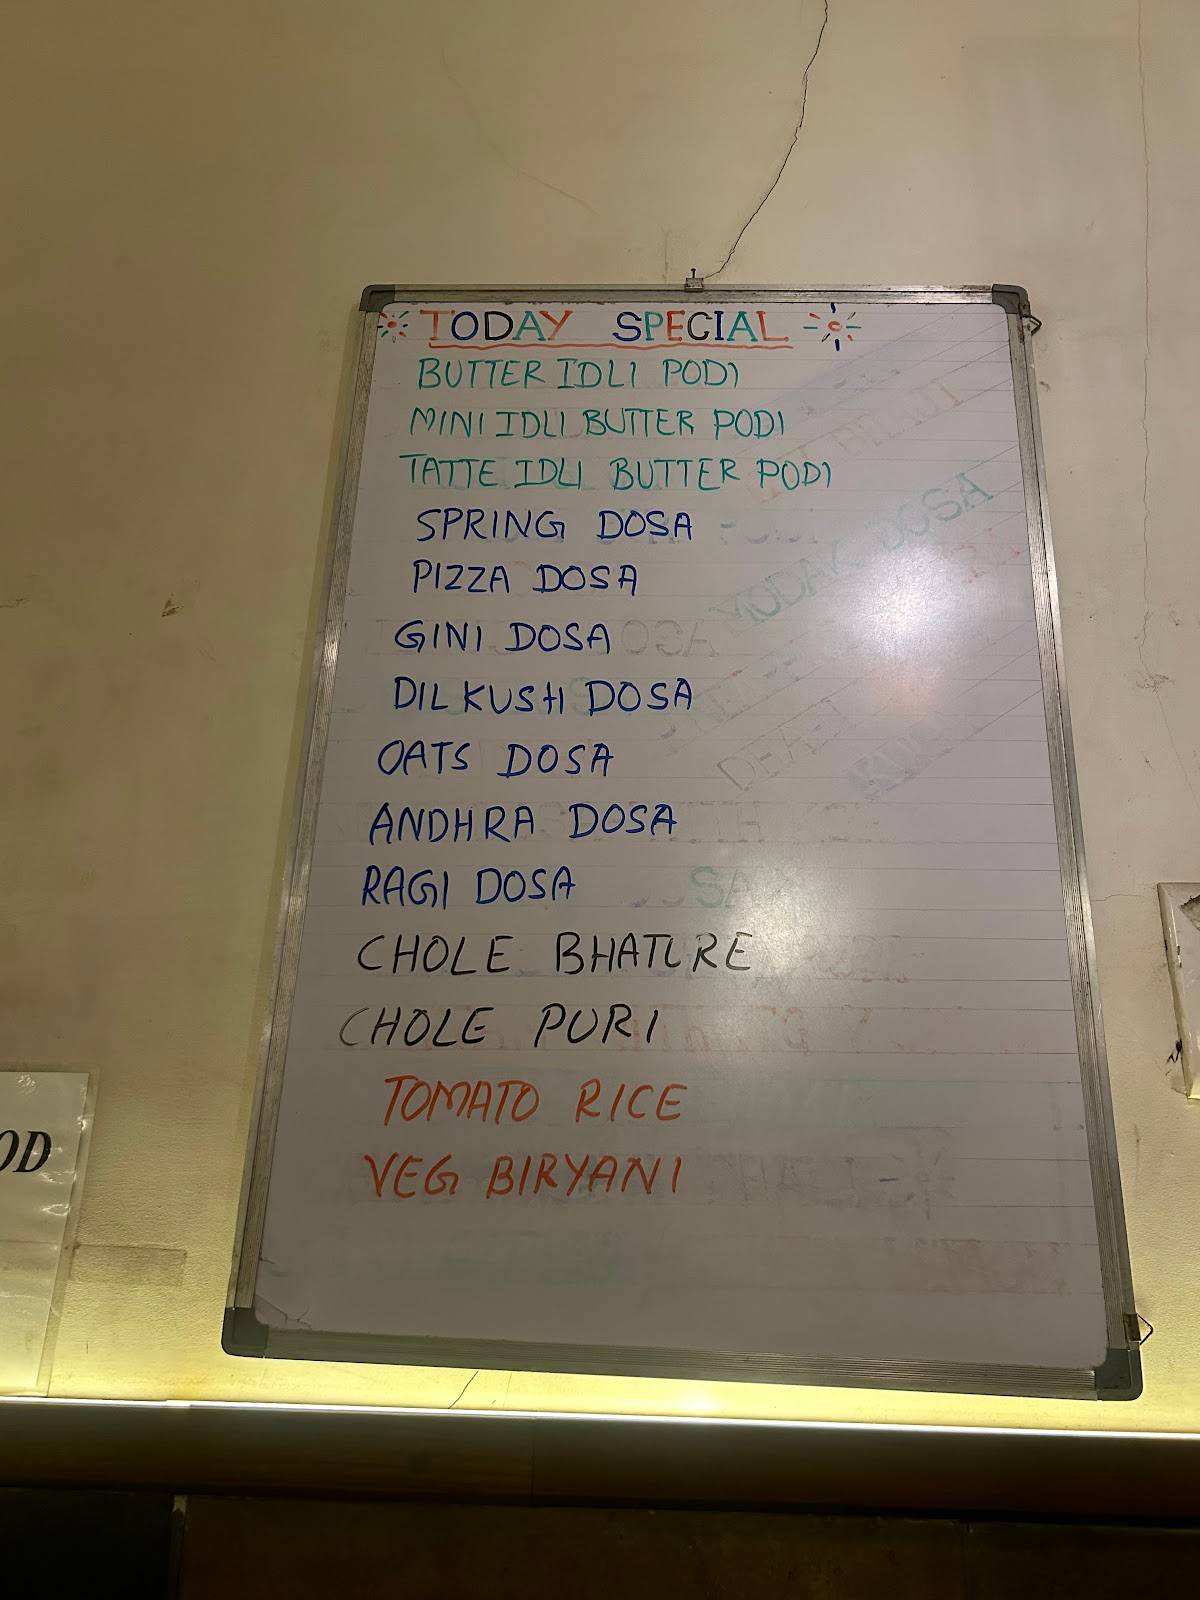 TODAY SPECIAL
BUTTER IDLI PODI
MINI IDLI BUTTER PODI
TATTE IDLI BUTTER PODI
SPRING DOSA
PIZZA DOSA
GINI DOSA
DILKUSH DOSA
OATS DOSA
ANDHRA DOSA
RAGI DOSA
CHOLE BHATURE
CHOLE PURI
TOMATO RICE
VEG BIRYANI
OD